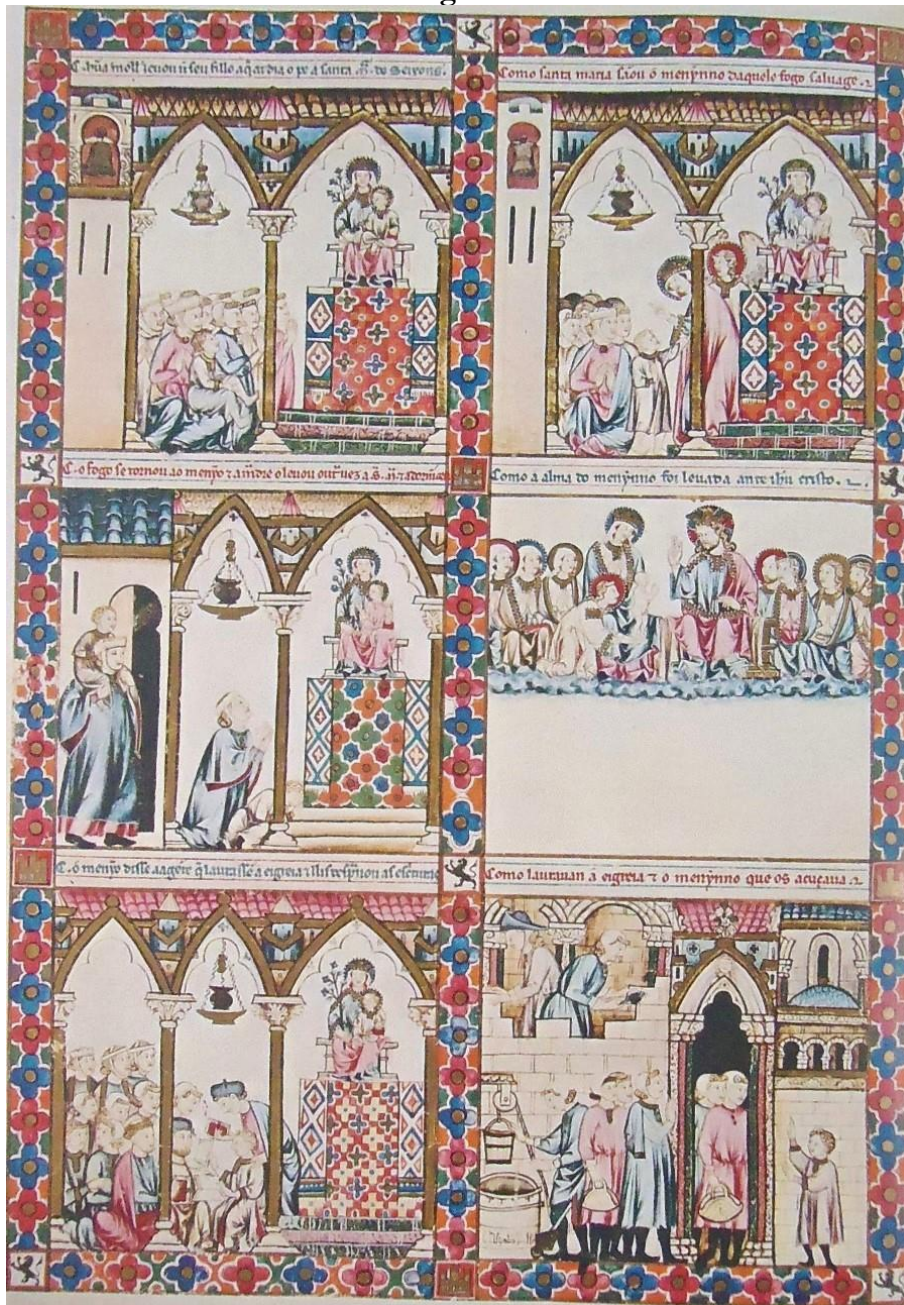 C. hũa moll̃ leuou ũ seu fillo a q̃ ardia o pe a santa M̃. de Seixons.
Como santa maria sãou o menỹnno daquele fogo saluage.
C. o fogo se tornou ao menỹo ⁊ a madre o leuou outra uez a
Como a alma do menỹnno foi leuada ante ihũ cristo.
C. o menỹo disse aa gẽte q̃ laurassẽ a eigreia ⁊ lles
Como laurauan a eigreia ⁊ o menỹnno que os acuçaua.